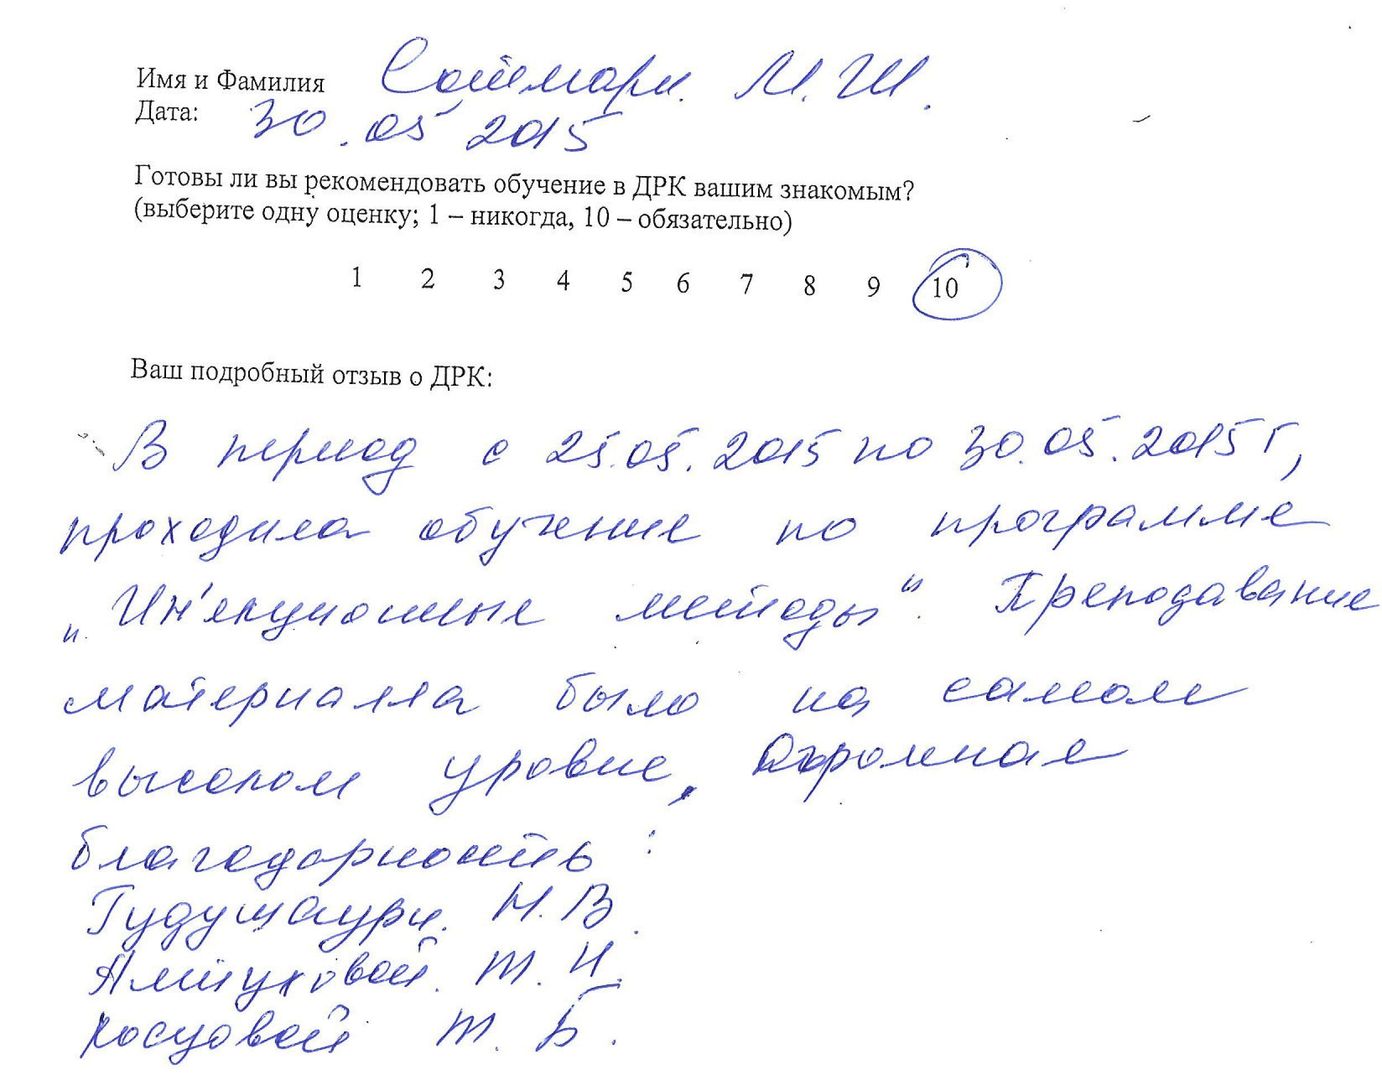 Имя и Фамилия Сатмари. М. Ш.
Дата: 30.05 2015
Готовы ли вы рекомендовать обучение в ДРК вашим знакомым?
(выберите одну оценку; 1 – никогда, 10 – обязательно)
1 2 3 4 5 6 7 8 9 10
Ваш подробный отзыв о ДРК:
В период с 25.05.2015 по 30.05.2015 г,
проходила обучение по программе
„Ин'екционные методы“. Преподавание
материалла было на самом
высоком уровне, Огромная
благодарность :
Гудушаури. Н. В.
Т. Н.
Косцовой Т. Б.